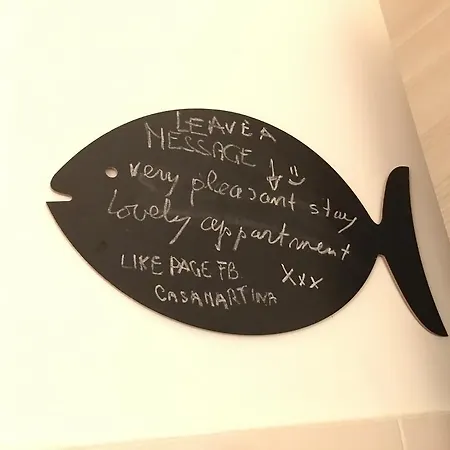 LEAVE A
MESSAGE ↓ :)
very pleasant stay
lovely appartment
LIKE PAGE FB xxx
CASAMARTINA